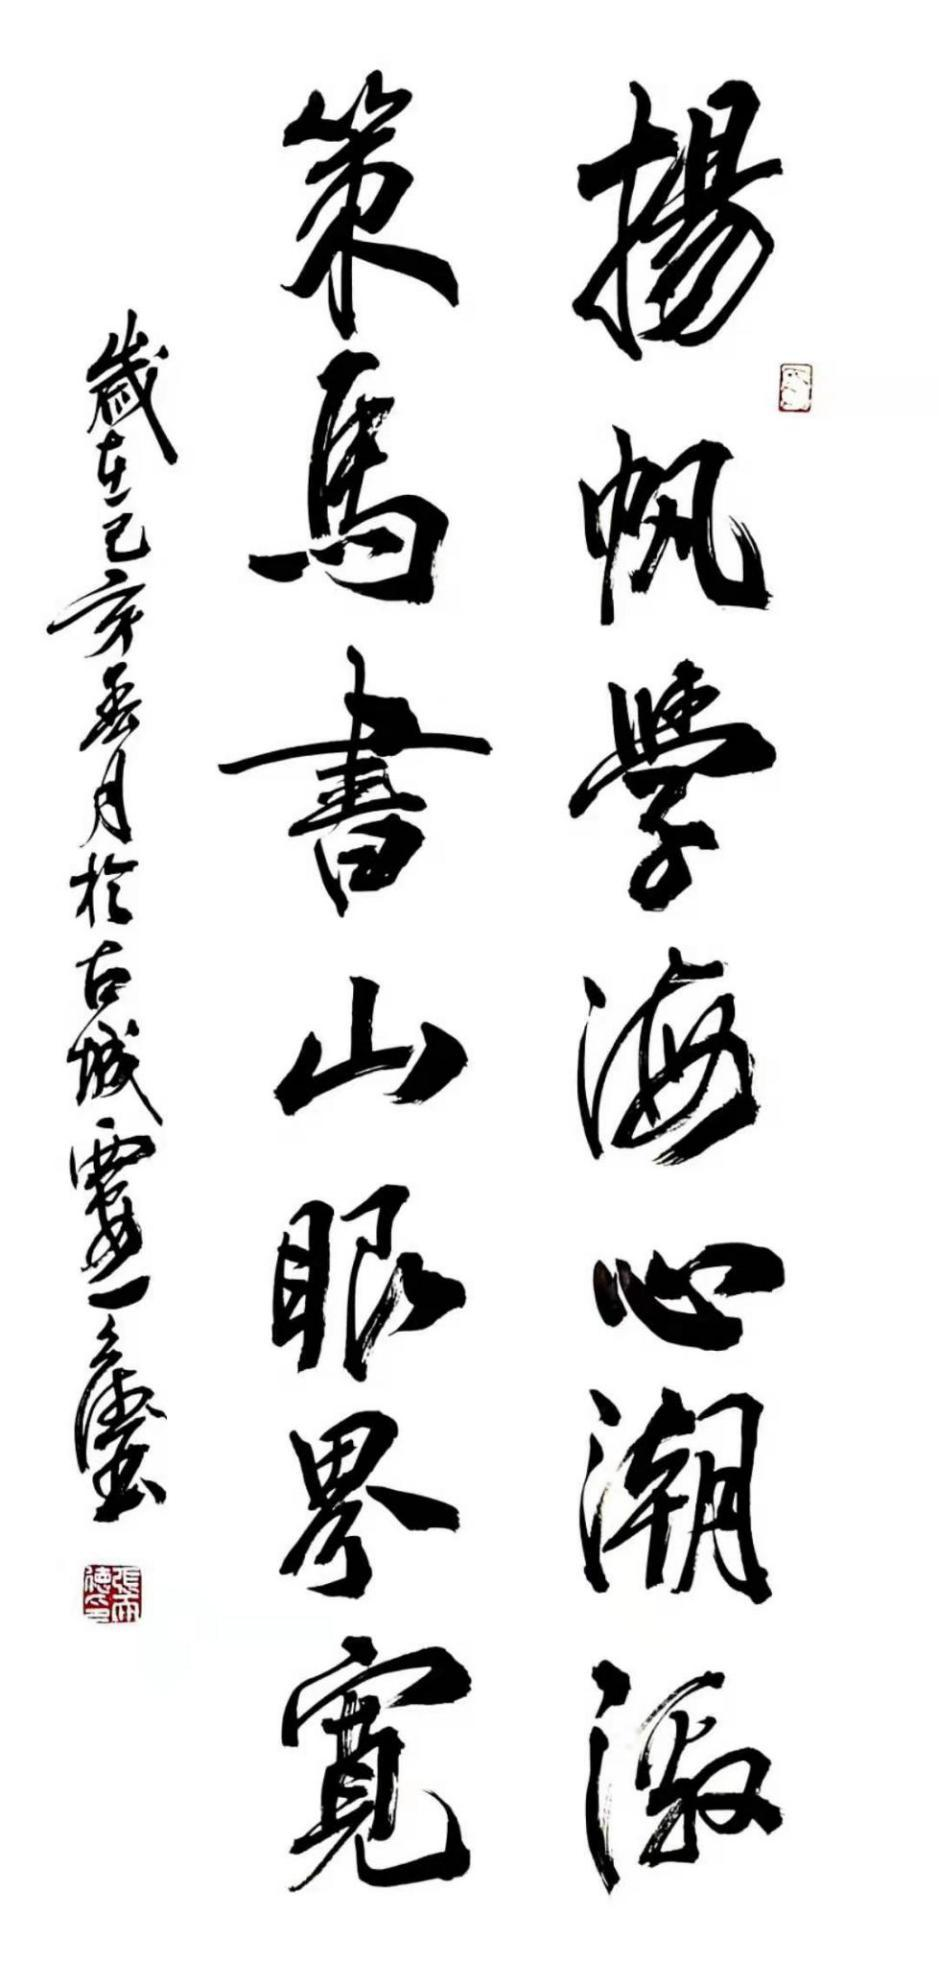 揚帆學海心潮激
策馬書山眼界寬
歲在己亥春月於古城
張雨德印